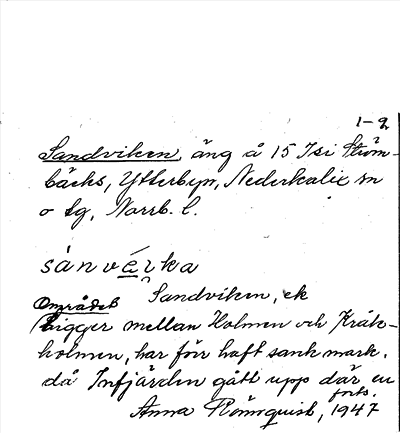 1-2
Sandviken, äng å 15 Isi Ström-
bäcks, Ytterbyn, Nederkalix sn
o tg, Norrb. l.
sánvı̀ka
Området Sandviken, ek
ligger mellan Holmen och Kråk-
holmen, har förr haft sank mark,
då Infjärden gått upp där, en
forts.
Anna Rönnquist, 1947